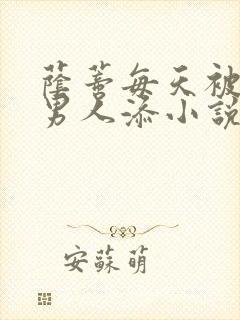 蔭蒂每天被
男人添小說
安蘇萌